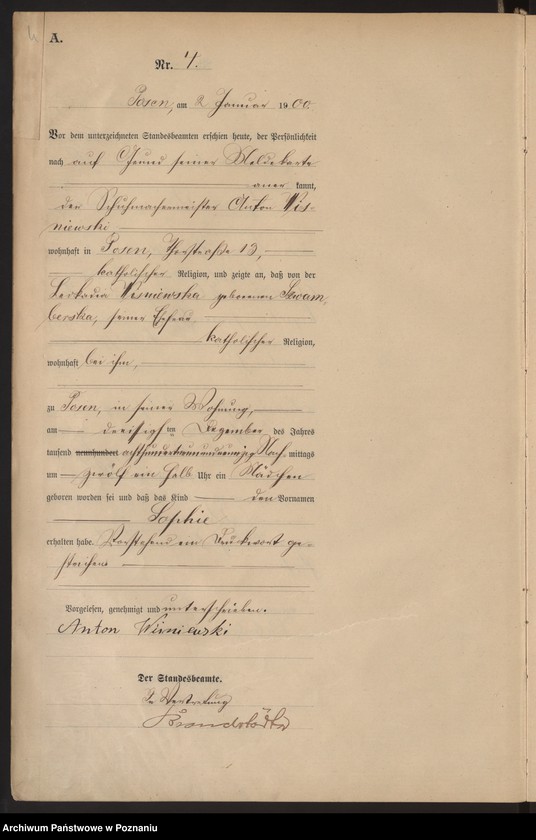 A.
Nr. 4.
Posen, am 2 Januar 1900
Vor dem unterzeichneten Standesbeamten erschien heute, der Persönlichkeit
nach auf Grund seiner Meldekarte
aner kannt,
der Schuhmachermeister Anton Wis-
niewski,
wohnhaft in Posen, Thorstraße 13,
katholischer Religion, und zeigte an, daß von der
Leokadia Wisniewska geborenen Skwam
berska, seiner Ehefrau
katholischer Religion,
wohnhaft bei ihm,
zu Posen, in seiner Wohnung,
am dreißigsten Dezember des Jahres
tausend neunhundert achthundertneunundneunzig Nach-mittags
um zwölf ein halb Uhr ein Mädchen
geboren worden sei und daß das Kind den Vornamen
Sophie
erhalten habe. Vorstehend ein Druckwort ge-
strichen.
Vorgelesen, genehmigt und unterschrieben.
Anton Wiśniewski
Der Standesbeamte.
In Vertretung
Archiwum Państwowe w Poznaniu